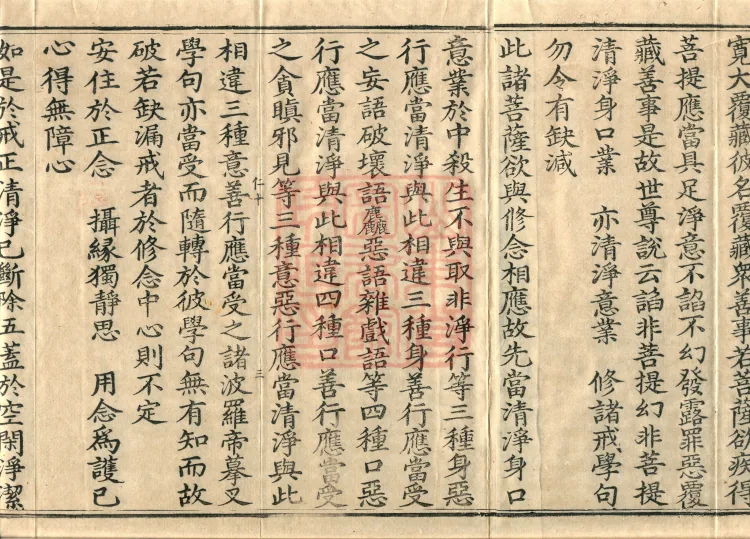 寛大覆藏彼名覆藏衆善事若菩薩欲疾得
菩提應當具足淨意不諂不幻發露罪惡覆
藏善事是故世尊說云諂非菩提幻非菩提
清淨身口業 亦清淨意業 修諸戒學句
勿令有缺減
此諸菩薩欲與修念相應故先當清淨身口
意業於中殺生不與取非淨行等三種身惡
行應當清淨與此相違三種身善行應當受
之妄語破壞語麤惡語雜戲語等四種口惡
行應當清淨與此相違四種口善行應當受
之貪瞋邪見等三種意惡行應當清淨與此
仁十 三
相違三種意善行應當受之諸波羅帝摹叉
學句亦當受而隨轉於彼學句無有知而故
破若缺漏戒者於修念中心則不定
安住於正念 攝緣獨靜思 用念爲護已
心得無障心
如是於戒正清淨已斷除五蓋於空閑淨潔